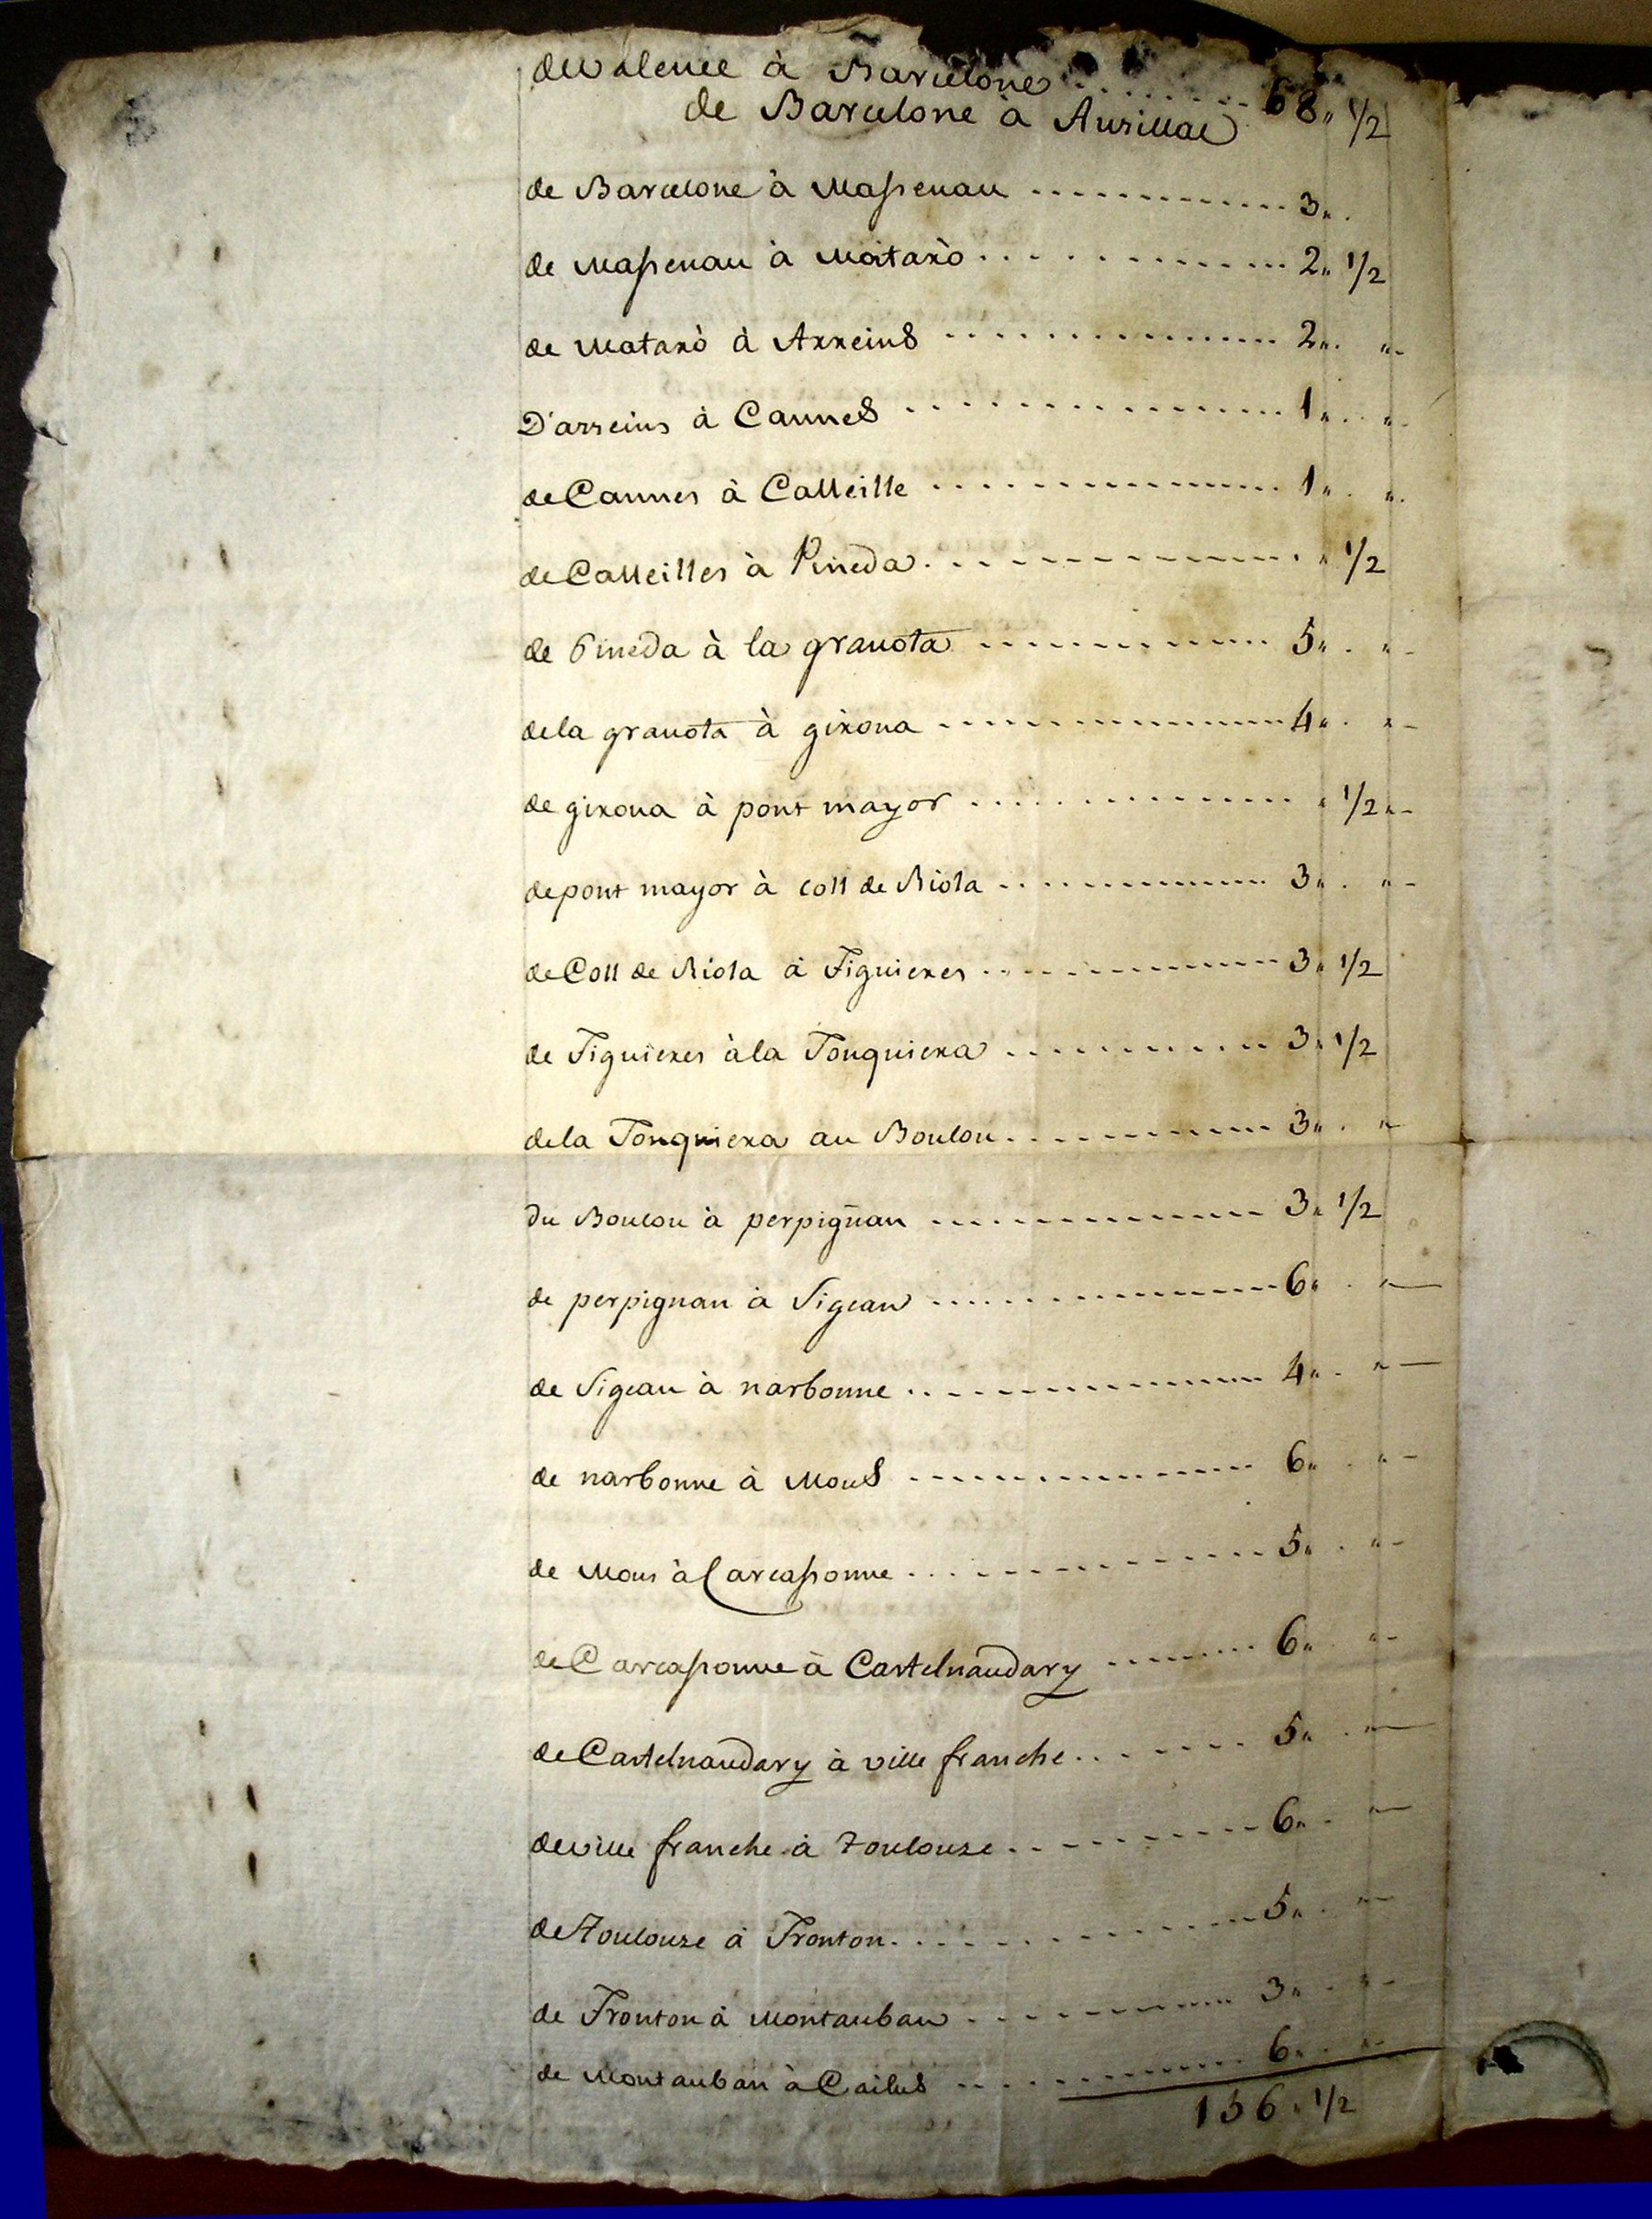 de valence à Barcelone ........ 68 „ 1/2
de Barcelone à Aurillac
de Barcelone à Massenau ............. 3 „
de Massenau à Mataro ............. 2 „ 1/2
de Mataro à Arreins ............. 2 „ „
D'arreins à Cannes ............. 1 „ „
de Cannes à Calleille ............. 1 „ „
de Calleilles à Pineda ............. „ 1/2
de Pineda à la granota ............. 5 „ „
de la granota à girona ............. 4 „ „
de girona à pont mayor ............. „ 1/2 „
de pont mayor à coll de Riola ............. 3 „ „
de Coll de Riola à Figuieres ............. 3 „ 1/2
de Figuieres à la Jonquiera ............. 3 „ 1/2
de la Jonquiera au Boulou ............. 3 „ „
du Boulou à perpignan ............. 3 „ 1/2
de perpignan à Sigean ............. 6 „ „
de Sigean à narbonne ............. 4 „ „
de narbonne à Mous ............. 6 „ „
de Mous à Carcassonne ............. 5 „ „
de Carcassonne à Castelnaudary ........ 6 „ „
de Castelnaudary à ville franche ........ 5 „ „
de ville franche à Toulouze ............. 6 „ „
de Toulouze à Fronton ............. 5 „ „
de Fronton à Montauban ............. 3 „ „
de Montauban à Cailus ............. 6 „ „
156 „ 1/2